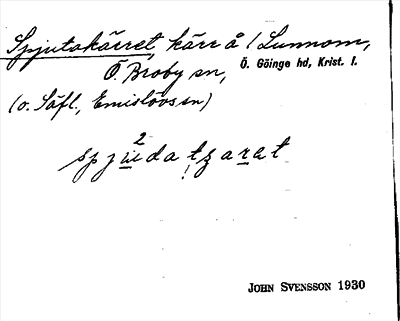 Spjutakärret, kärr å / Lunnom,
Ö. Broby sn, Ö. Göinge hd, Krist. l.
(o. Säfl., Emislövs sn)
2
spjudatzarat
JOHN SVENSSON 1930